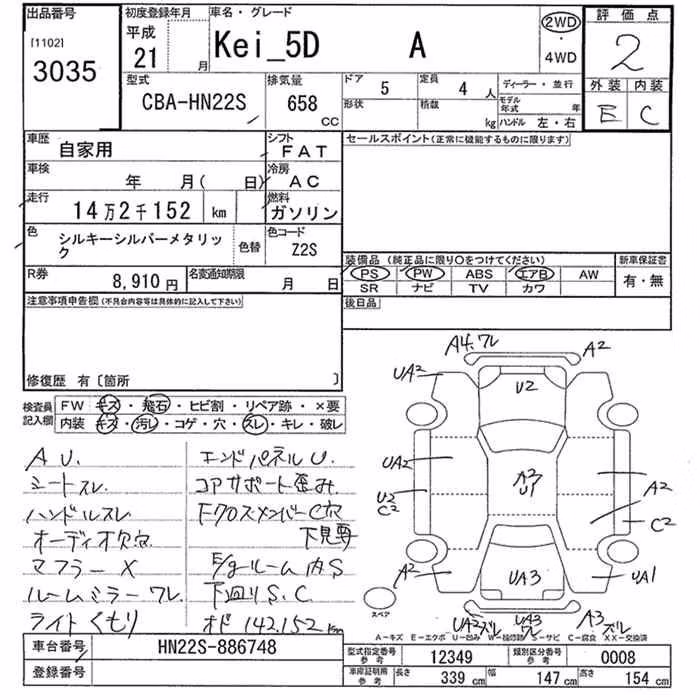 出品番号
[1102]
3035
初度登録年月
平成
21 月
車名・グレード
Kei_5D A
2WD
・
4WD
評価点
2
外装 内装
E C
型式
CBA-HN22S
排気量
658
CC
ドア
5
形状
定員
4 人
積載
kg
ディーラー・並行
モデル年式 年
ハンドル 左・右
車歴
自家用
シフト
FAT
車検
年 月( 日)
冷房
AC
走行
14万2千152 km
燃料
ガソリン
色
シルキーシルバーメタリック
色替
色コード
Z2S
R券
8,910 円
名変通知期限
月 日
セールスポイント(正常に機能するものに限ります)
装備品 (純正品に限り○をつけてください)
新車保証書
PS PW ABS エアB AW
有・無
SR ナビ TV カワ
後日品
注意事項申告欄(不具合内容等は具体的に記入して下さい)
修復歴 有〔箇所 〕
検査員記入欄
FW キズ・飛石・ヒビ割・リペア跡・×要
内装 キズ・汚レ・コゲ・穴・スレ・キレ・破レ
AU.
シートスレ
ハンドルスレ
オーディオ欠品
マフラーX
ルームミラーワレ
ライトくもり
エンドパネルU.
コアサポート歪み
Fクロスメンバー C穴
下見要
E/gルーム内S
下回りS.C.
オド142,152km
A4.ワレ
A2
UA2
U2
UA2
U2
C2
A2
U1
A2
C2
A2
UA3
UA1
スペア
UA2ズレ
UA3
ワレ
A3ズレ
A-キズ E-エクボ U-凹み W-補修跡 S-サビ C-腐食 XX-交換済
車台番号
HN22S-886748
登録番号
型式指定番号
参考
12349
類別区分番号
参考
0008
車庫証明用
参考
長さ
339 cm
幅
147 cm
高さ
154 cm